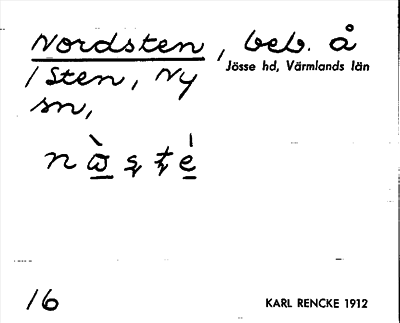 Nordsten, beb. å
Jösse hd, Värmlands län
/Sten, Ny
sn,
16
KARL RENCKE 1912